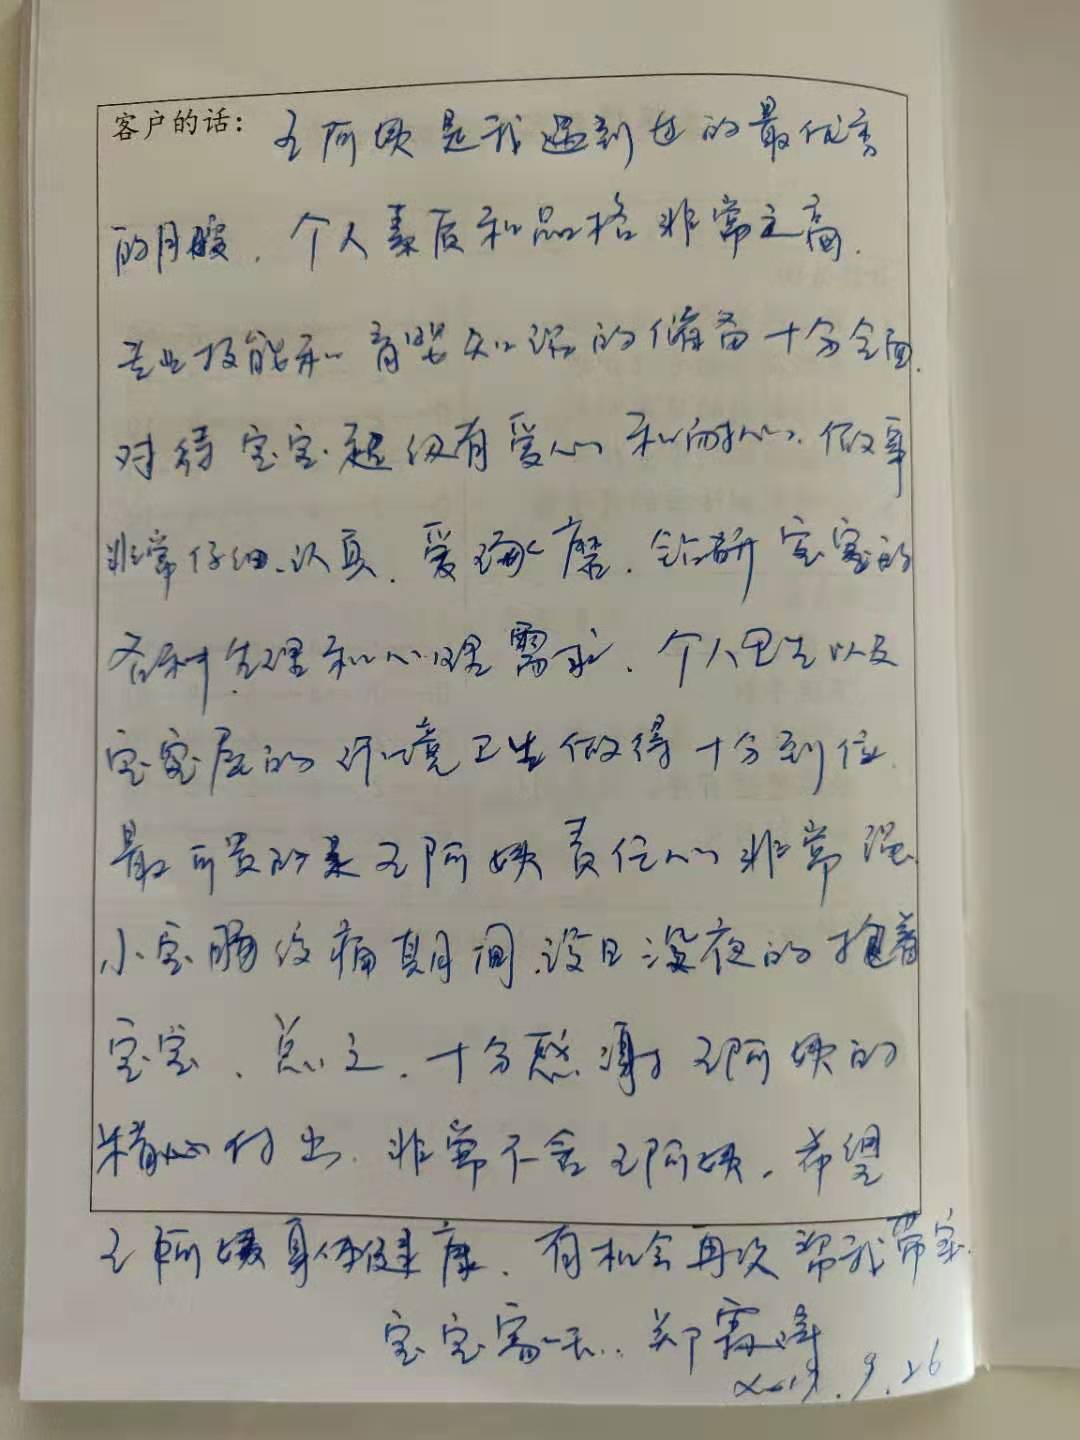 客户的话：王阿姨是我遇到过的最优秀
的月嫂，个人素质和品格非常之高，
专业技能和育婴知识的储备十分全面，
对待宝宝超级有爱心和耐心，做事
非常仔细、认真，爱琢磨，钻研宝宝的
各种生理和心理需求，个人卫生以及
宝宝屋的环境卫生做得十分到位，
最可贵的是王阿姨责任心非常强
小宝肠绞痛期间，没日没夜的抱着
宝宝、总之，十分感谢王阿姨的
精心付出，非常不舍王阿姨，希望
王阿姨身体健康，有机会再次帮我带宝
宝宝 郑霞
2019.9.26